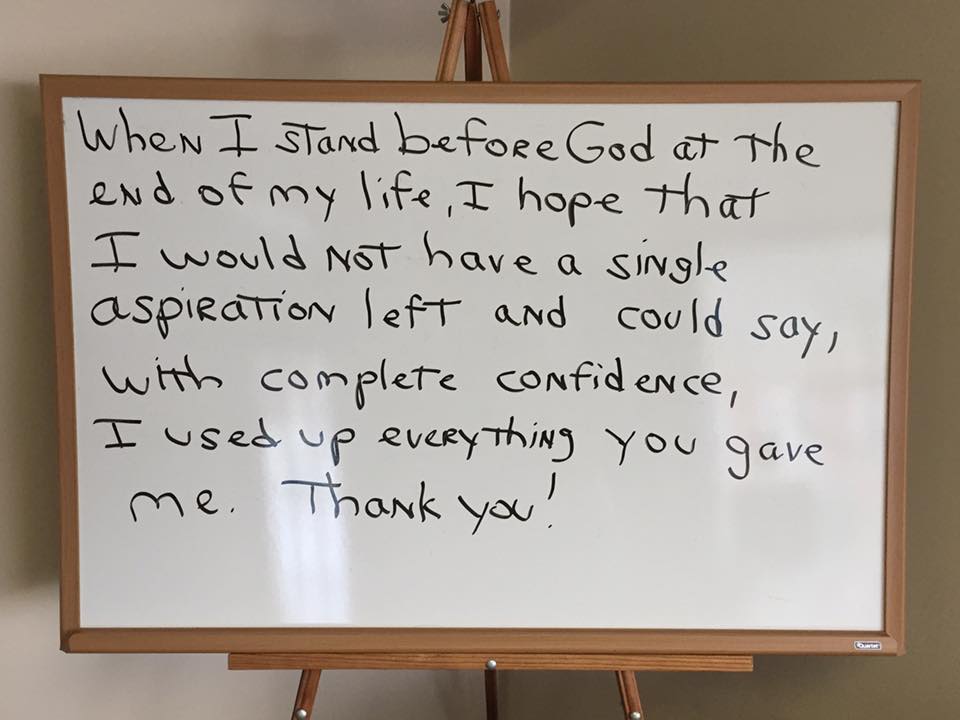 When I stand before God at the
end of my life, I hope that
I would not have a single
aspiration left and could say,
with complete confidence,
I used up everything you gave
me. Thank you!
Quartet